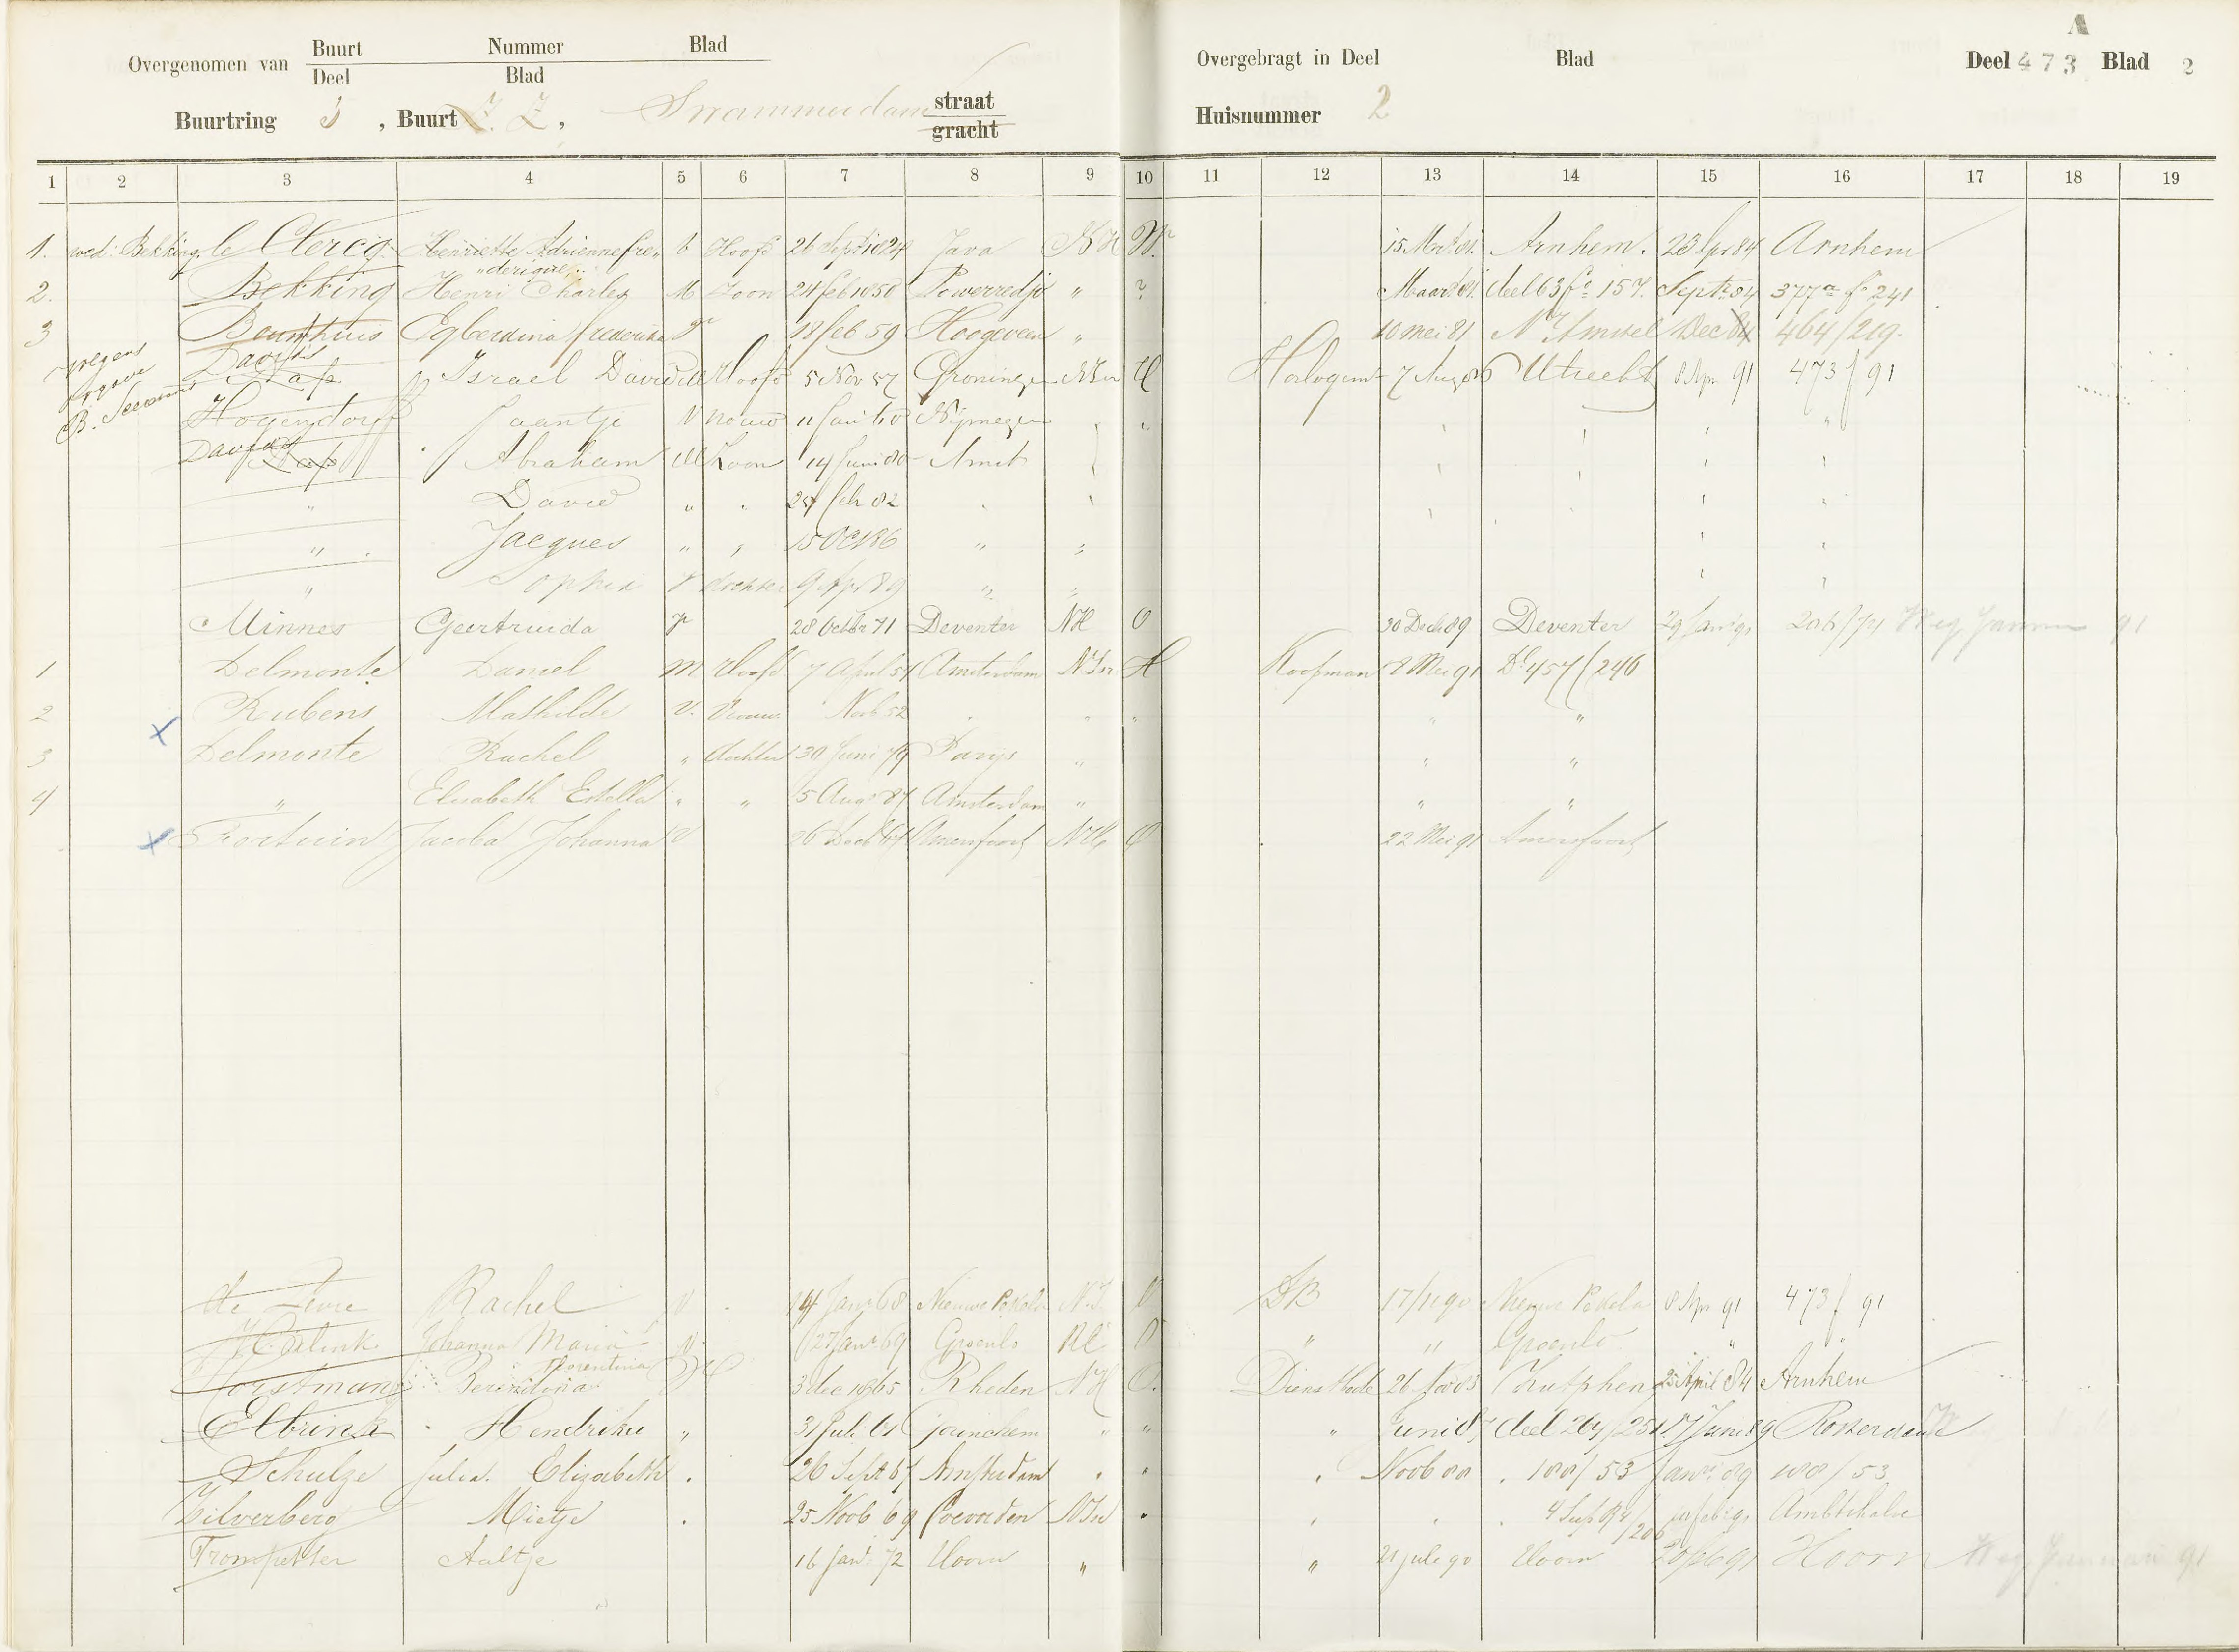 A
Overgenomen van Buurt Nummer Blad
Deel Blad
Overgebragt in Deel Blad Deel 473 Blad 2
Buurtring 3, Buurt Z. Z, straat
gracht
Huisnummer 2
1 2 3 4 5 6 7 8 9 10 11 12 13 14 15 16 17 18 19
1. wed: Bekking le Clercq Henriette Adrienne Fre„ V Hoofd 26 Sept 1824 Java NH W. 15 Mrt 81. Arnhem. 23 Apr 84 Arnhem
„derique
2. Bekking Henri Charles M Zoon 24 feb 1850 Poewerredjo „ ? Maart 81. deel 63 fo 157. Sept 84 377a fo 241
3 Egberdina frederika Vr 18 feb 59 Hoogeveen „ 10 mei 81 N Amstel Dec 84 464/219.
volgens Davids
opgave Israel David M Hoofd 5 Nov 57 Groningen N Isr H 7 Aug 86 Utrecht 8 Apr 91 473 f 91
B. Hogendorff Jaantje V vrouw 11 Jan 60 Nijmegen
Davids Abraham M Zoon 14 Juni 80 Amst
„ David „ „ 24 feb 82
„ Jacques „ „ 15 Oct 86 „ „
„ Sophia V dochter 9 Apr 89 „ „
Minnes Geertruida Vr 28 Octbr 71 Deventer NH O 30 Decb 89 Deventer 29 Jan 91 Weg 91
1 Delmonte Daniel M Hoofd 7 April 54 Amsterdam N Isr H Koopman 8 Mei 91 Dl 457 f 246
2 Rubens Mathilde V. Vrouw Novb 52 „ „ „ „ „
3 Delmonte Rachel „ dochter 30 Juni 79 Parijs „ „ „
4 „ Elisabeth Estella „ „ 5 Aug 87 Amsterdam „ „ „
Fortuin Jacoba Johanna V 26 Decb Amersfoort NH O 22 Mei 91 Amersfoort
de Rachel V 14 Jan 68 Nieuwe Pekela N.I. O DB 17/11 90 Nieuwe Pekela 8 Apr 91 473 f 91
Johanna Maria V 27 Jan 69 Groenlo O „ „ Groenlo „ „
Florentina
Horstmann 3 dec 1865 Rheden NH O. Dienstbode 26 Nov 83 Zutphen 25 April 84 Arnhem
Elbrink Hendrika „ 31 Juli 61 Gorinchem „ „ „ Juni 87 deel 267/251 17 Juni 89 Rotterdam
Schulze Julia Elizabeth „ 26 Sept 67 Amsterdam „ „ „ Novb 88 188/53 Jan 89 188/53
Zilverberg Mietje „ 25 Novb 69 Coevorden N Isr „ „ „ /206 Ambtshalve
Trompetter Aaltje 16 Jan 72 Hoorn „ „ 21 juli 90 Hoorn Hoorn Weg Januari 91